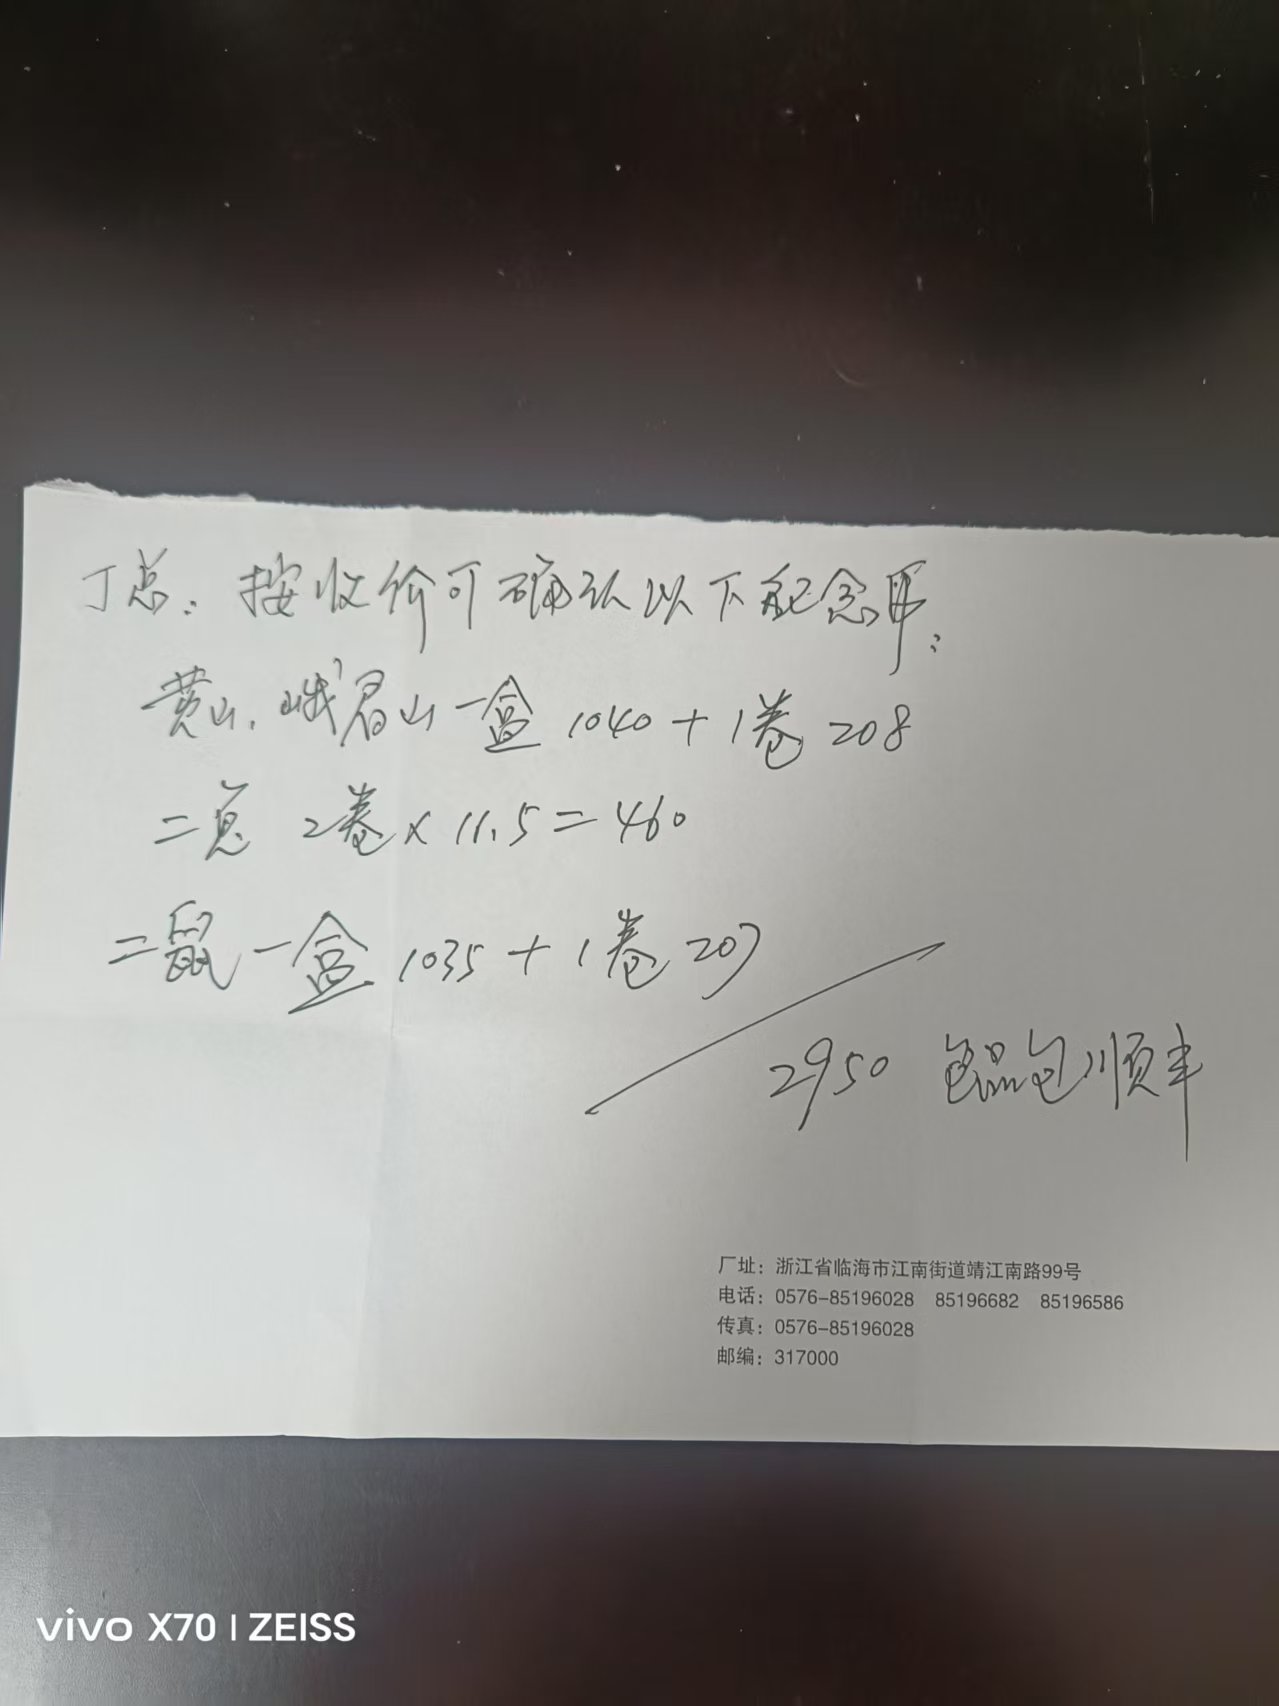 丁总：按收价可确认以下纪念币：
黄山、峨眉山一盒 1040 + 1卷 208
二兔 2卷 × 11.5 = 460
二鼠一盒 1035 + 1卷 207
2950 包品包顺丰
厂址：浙江省临海市江南街道靖江南路99号
电话：0576-85196028 85196682 85196586
传真：0576-85196028
邮编：317000
vivo X70 | ZEISS